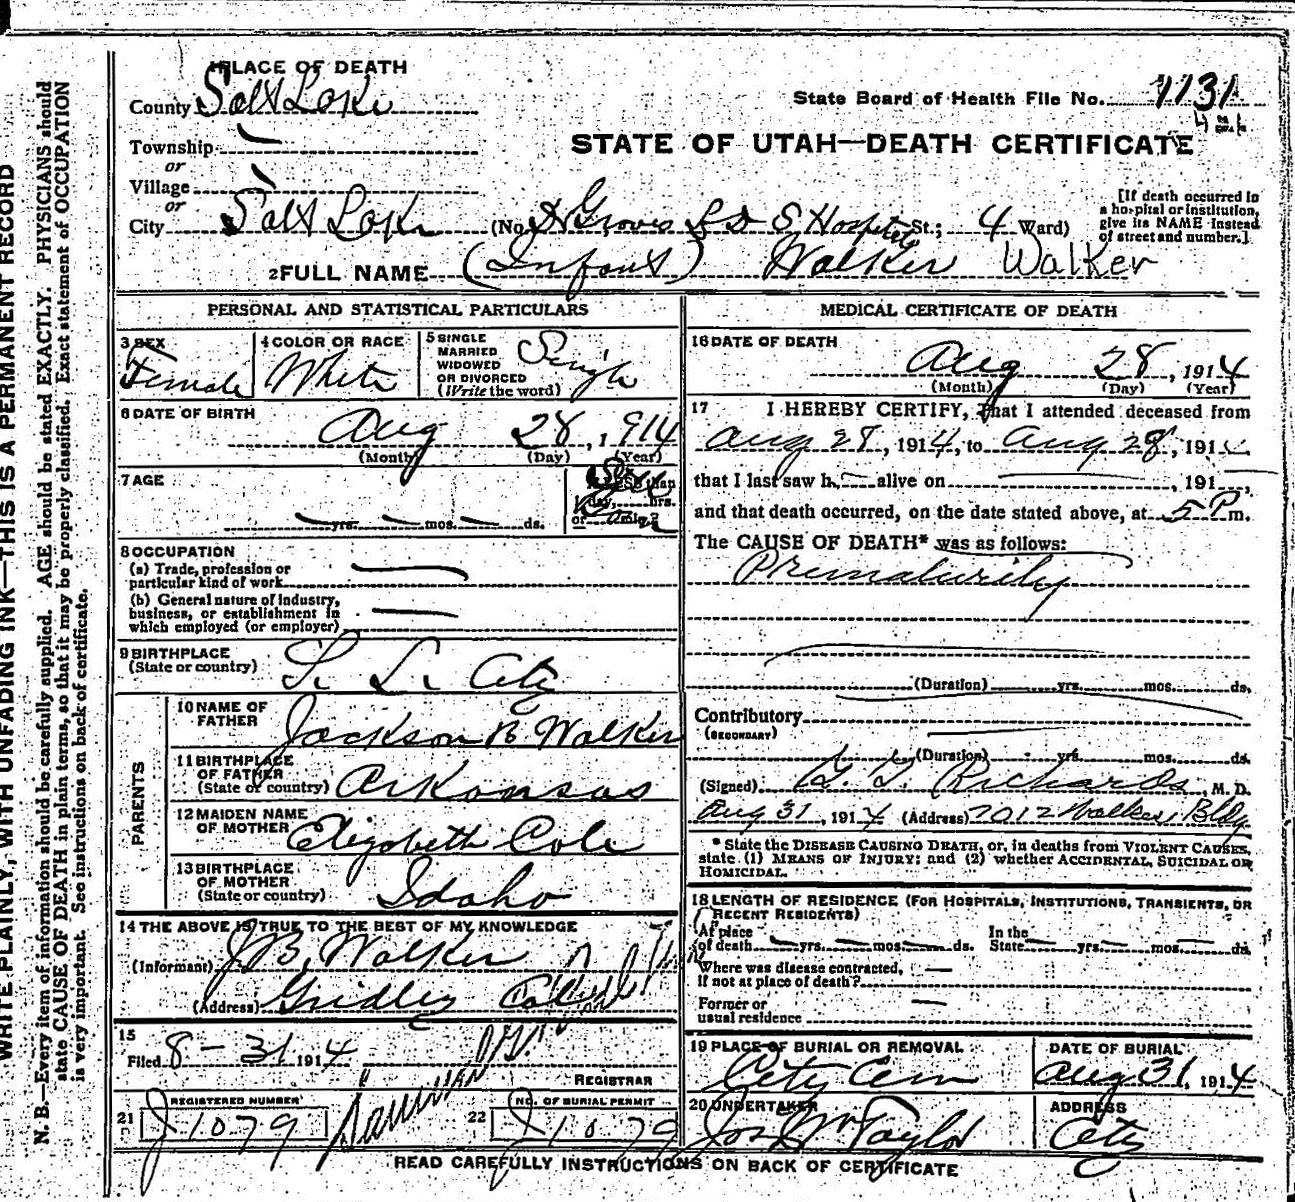 WRITE PLAINLY, WITH UNFADING INK—THIS IS A PERMANENT RECORD
N. B.—Every item of information should be carefully supplied. AGE should be stated EXACTLY. PHYSICIANS should
state CAUSE OF DEATH in plain terms, so that it may be properly classified. Exact statement of OCCUPATION
is very important. See instructions on back of certificate.
1 PLACE OF DEATH
County Salt Lake
State Board of Health File No. 1131
Township
or
STATE OF UTAH—DEATH CERTIFICATE
Village
or
City Salt Lake (No. Groves L D S Hospital St.; 4 Ward)
[If death occurred in
a hospital or institution,
give its NAME instead
of street and number.]
2 FULL NAME (Infant) Walker Walker
PERSONAL AND STATISTICAL PARTICULARS
3 SEX
Female
4 COLOR OR RACE
White
5 SINGLE
MARRIED
WIDOWED
OR DIVORCED
(Write the word)
Single
6 DATE OF BIRTH
Aug 28, 1914
(Month) (Day) (Year)
7 AGE
yrs. mos. ds.
8 OCCUPATION
(a) Trade, profession or
particular kind of work
(b) General nature of industry,
business, or establishment in
which employed (or employer)
9 BIRTHPLACE
(State or country)
S. L. City
PARENTS
10 NAME OF
FATHER
Jackson B Walker
11 BIRTHPLACE
OF FATHER
(State or country)
Arkansas
12 MAIDEN NAME
OF MOTHER
Elizabeth Cole
13 BIRTHPLACE
OF MOTHER
(State or country)
Idaho
14 THE ABOVE IS TRUE TO THE BEST OF MY KNOWLEDGE
(Informant) J B, Walker
(Address) Gridley
15
Filed 8-31 1914
REGISTRAR
21 REGISTERED NUMBER
J1079
22 NO. OF BURIAL PERMIT
J1079
MEDICAL CERTIFICATE OF DEATH
16 DATE OF DEATH
Aug 28, 1914
(Month) (Day) (Year)
17 I HEREBY CERTIFY, that I attended deceased from
Aug 28, 1914, to Aug 28, 191
that I last saw h alive on , 191
and that death occurred, on the date stated above, at 5 P m.
The CAUSE OF DEATH* was as follows:
Prematurity
(Duration) yrs. mos. ds.
Contributory
(SECONDARY)
(Duration) yrs. mos. ds.
(Signed) G. G. Richards, M. D.
Aug 31, 1914 (Address) Walker Bldg
* State the DISEASE CAUSING DEATH, or, in deaths from VIOLENT CAUSES,
state (1) MEANS OF INJURY; and (2) whether ACCIDENTAL, SUICIDAL OR
HOMICIDAL.
18 LENGTH OF RESIDENCE (FOR HOSPITALS, INSTITUTIONS, TRANSIENTS, OR
RECENT RESIDENTS)
At place
of death yrs. mos. ds.
In the
State yrs. mos. ds.
Where was disease contracted,
if not at place of death?
Former or
usual residence
19 PLACE OF BURIAL OR REMOVAL
City Cem
DATE OF BURIAL
Aug 31, 1914
20 UNDERTAKER
Jos Wm Taylor
ADDRESS
City
READ CAREFULLY INSTRUCTIONS ON BACK OF CERTIFICATE